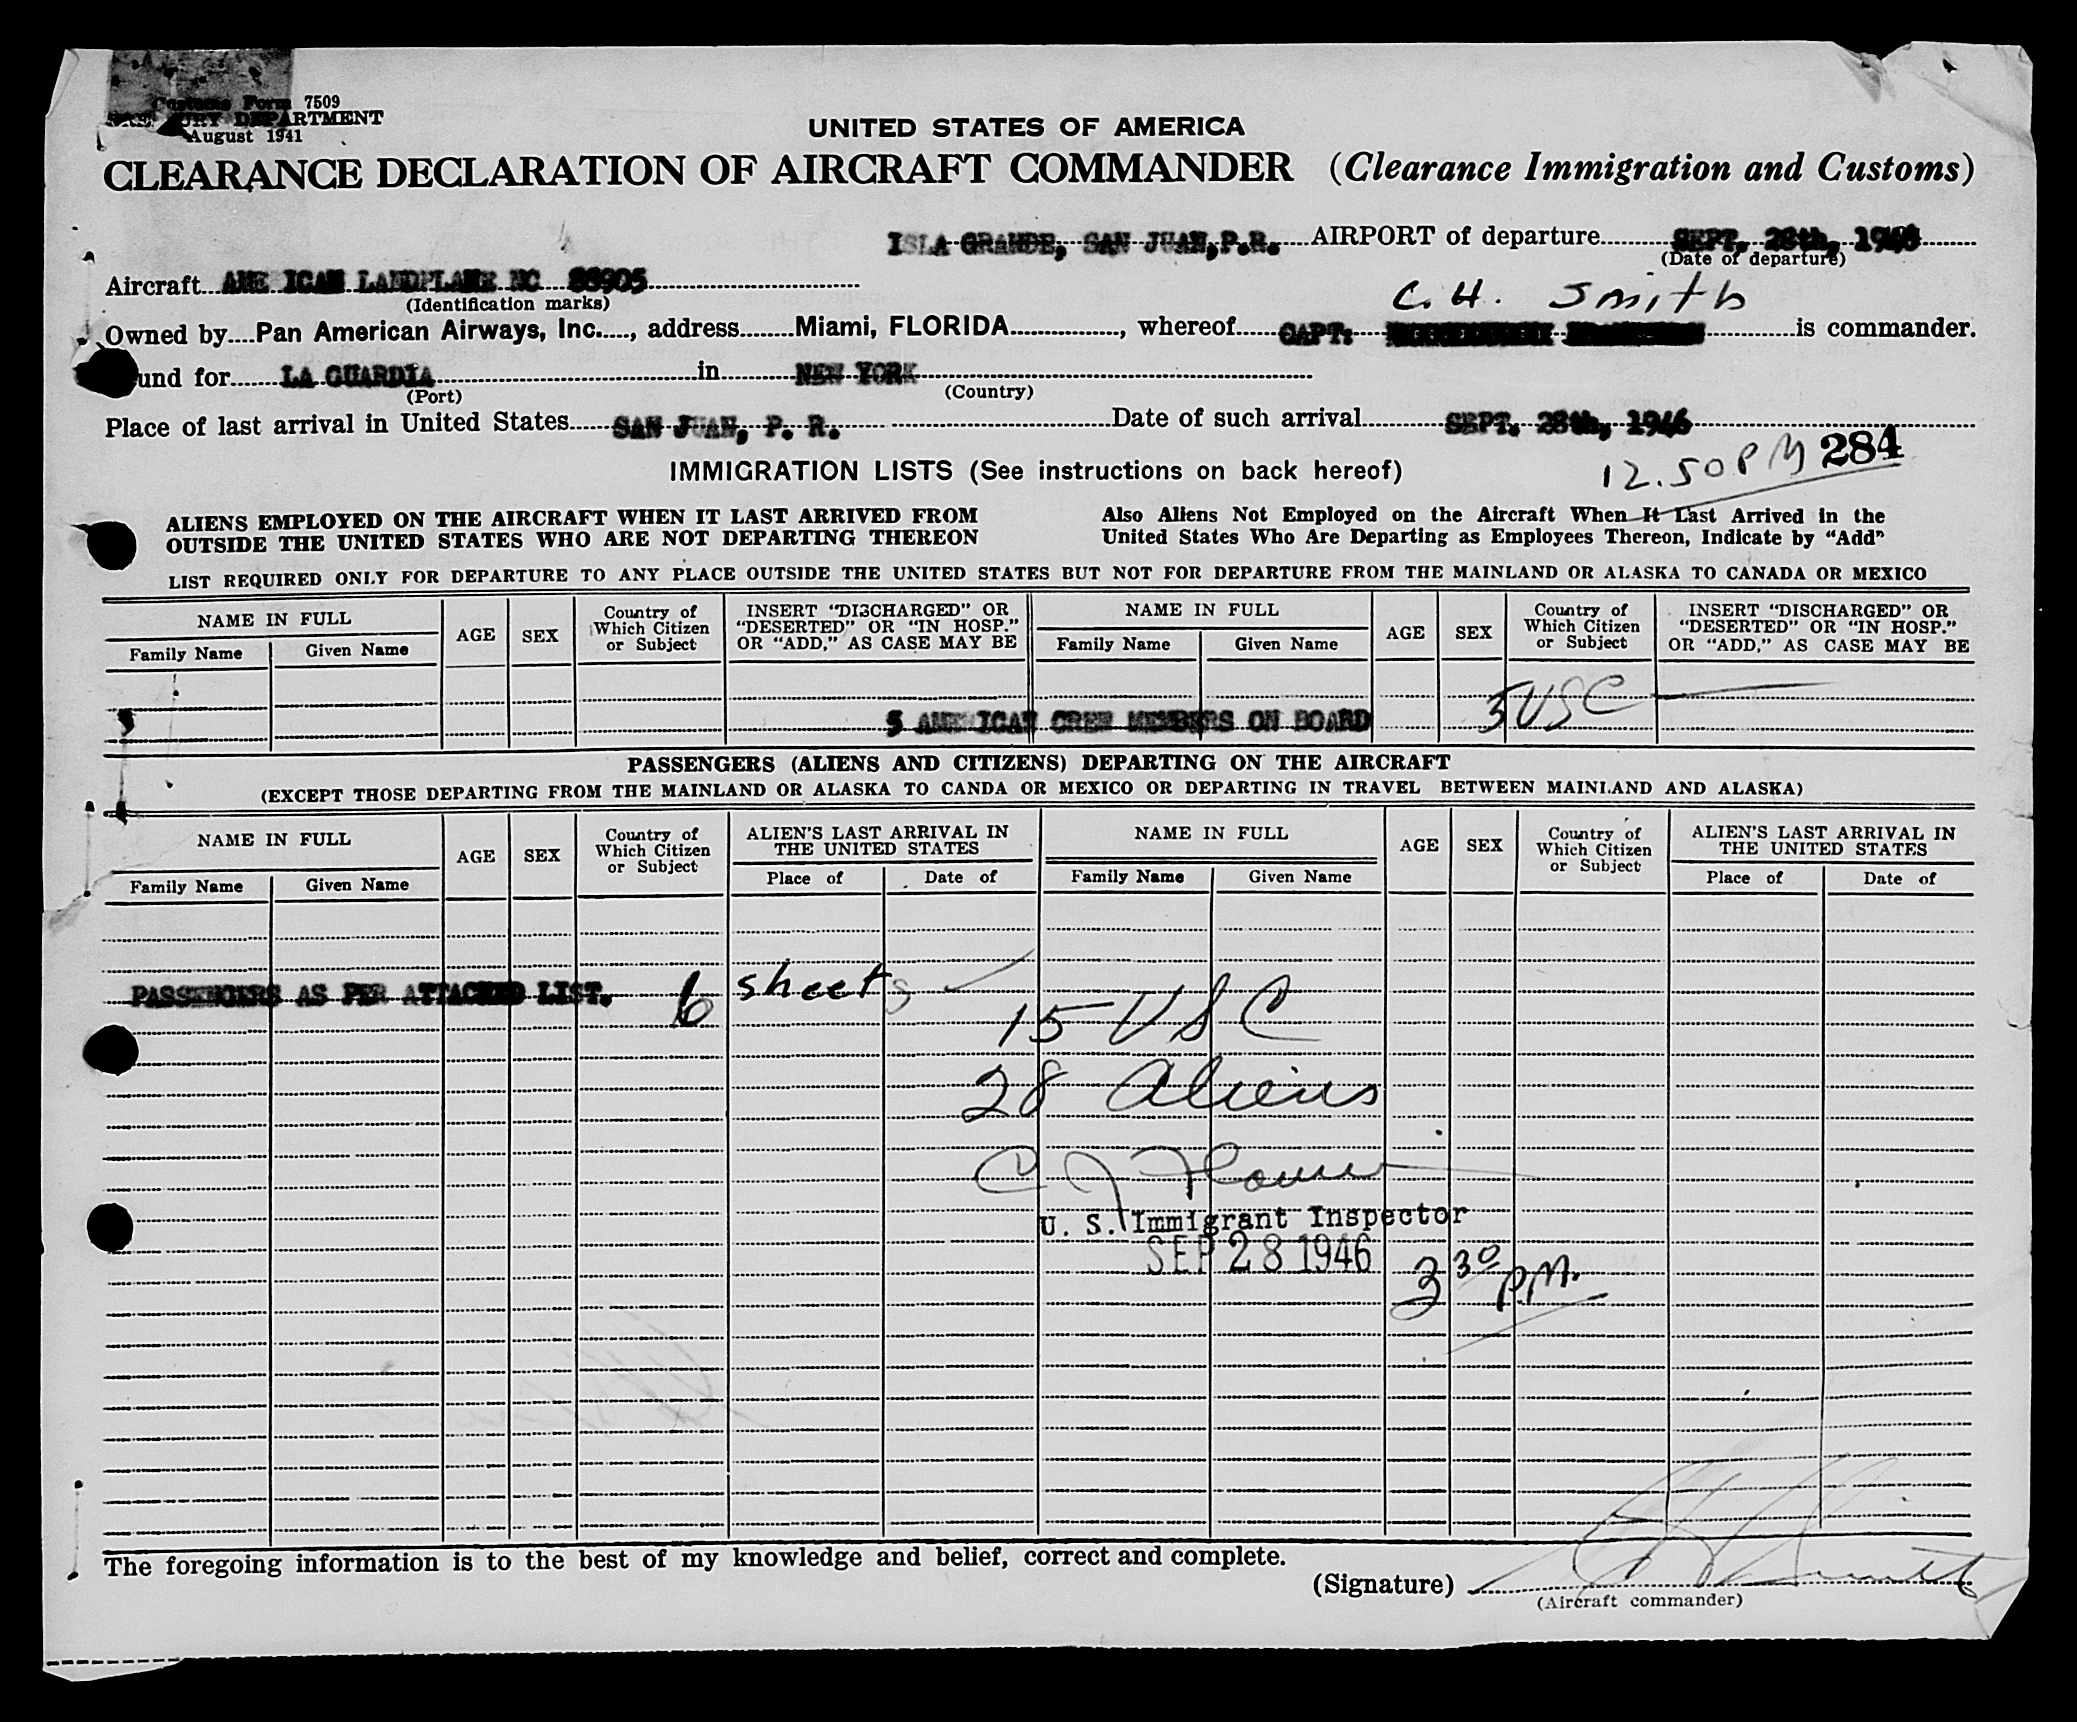 Customs Form 7509
TREASURY DEPARTMENT
August 1941
UNITED STATES OF AMERICA
CLEARANCE DECLARATION OF AIRCRAFT COMMANDER (Clearance Immigration and Customs)
ISLA GRANDE, SAN JUAN,P.R. AIRPORT of departure SEPT. 28th, 1946
(Date of departure)
Aircraft AMERICAN LANDPLANE NC 88905
(Identification marks)
C. H. Smith
Owned by Pan American Airways, Inc., address Miami, FLORIDA, whereof CAPT: is commander.
und for LA GUARDIA in NEW YORK
(Port) (Country)
Place of last arrival in United States SAN JUAN, P. R. Date of such arrival SEPT. 28th, 1946
12.50 PM 284
IMMIGRATION LISTS (See instructions on back hereof)
ALIENS EMPLOYED ON THE AIRCRAFT WHEN IT LAST ARRIVED FROM Also Aliens Not Employed on the Aircraft When It Last Arrived in the
OUTSIDE THE UNITED STATES WHO ARE NOT DEPARTING THEREON United States Who Are Departing as Employees Thereon, Indicate by “Add”
LIST REQUIRED ONLY FOR DEPARTURE TO ANY PLACE OUTSIDE THE UNITED STATES BUT NOT FOR DEPARTURE FROM THE MAINLAND OR ALASKA TO CANADA OR MEXICO
NAME IN FULL AGE SEX Country of Which Citizen or Subject INSERT “DISCHARGED” OR “DESERTED” OR “IN HOSP.” OR “ADD,” AS CASE MAY BE NAME IN FULL AGE SEX Country of Which Citizen or Subject INSERT “DISCHARGED” OR “DESERTED” OR “IN HOSP.” OR “ADD,” AS CASE MAY BE
Family Name Given Name Family Name Given Name
5 5 AMERICAN CREW MEMBERS ON BOARD 5 USC
PASSENGERS (ALIENS AND CITIZENS) DEPARTING ON THE AIRCRAFT
(EXCEPT THOSE DEPARTING FROM THE MAINLAND OR ALASKA TO CANDA OR MEXICO OR DEPARTING IN TRAVEL BETWEEN MAINLAND AND ALASKA)
NAME IN FULL AGE SEX Country of Which Citizen or Subject ALIEN’S LAST ARRIVAL IN THE UNITED STATES NAME IN FULL AGE SEX Country of Which Citizen or Subject ALIEN’S LAST ARRIVAL IN THE UNITED STATES
Family Name Given Name Place of Date of Family Name Given Name Place of Date of
PASSENGERS AS PER ATTACHED LIST. 6 sheets
15 USC
28 Aliens
U. S. Immigrant Inspector
SEP 28 1946 3 30 P.M.
The foregoing information is to the best of my knowledge and belief, correct and complete.
(Signature) C H Smith
(Aircraft commander)